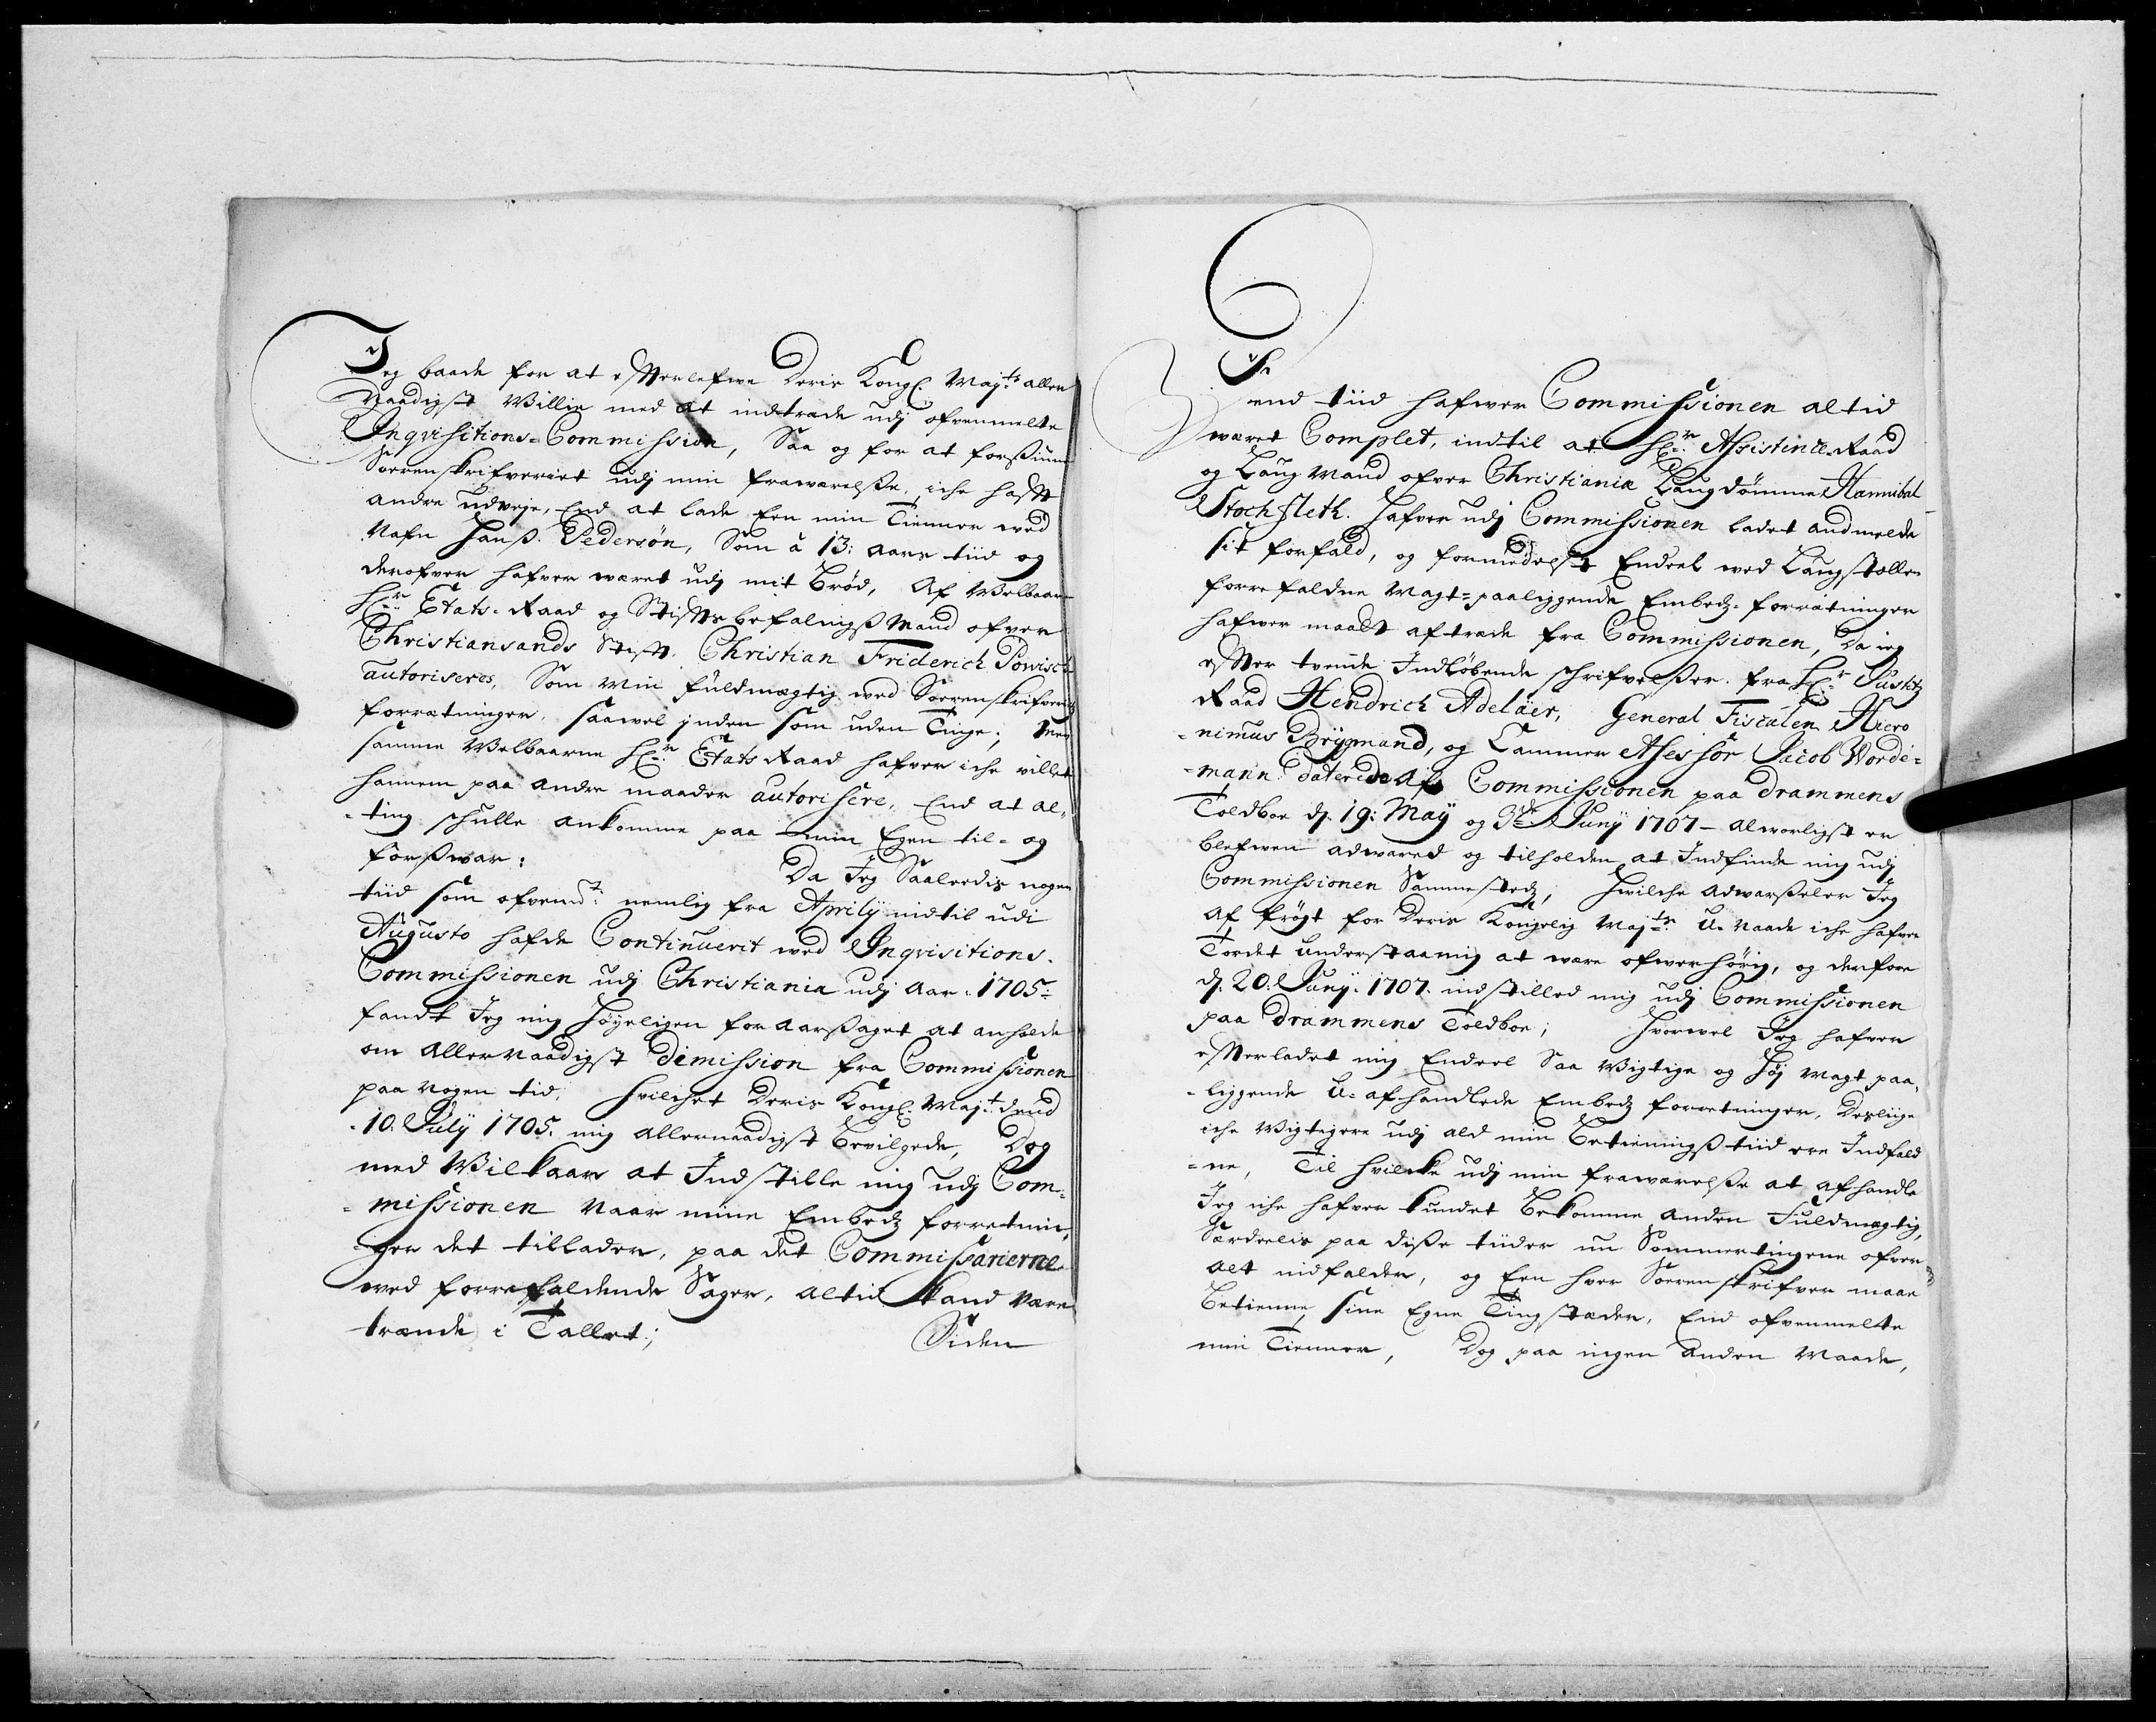 Jeg baade for at efterlefve Deris Kongl. Maj:ts aller
Naadigst Willie med at indtræde udj ofvenmelte
Inqvisitions-Commission, Saa og for at forsiune
Sorrenskrifveriet udj min fraværelse, iche hafft
andre udveje, End at lade Een min Tienner ved
Nafn Hanß Pedersøn, Som á 13: aars tiid og
derofver hafver været udj mit Brød, Af Welbaarn
Hr: Etats-Raad og Stifftsbefalingsmand ofver
Christiansands Stift. Christian Friderich Powisch
autoriseres, Som Min fuldmægtig ved Sorrenskrifveriets
forretninger, saavel jnden som uden Tinge; Men
samme Welbaarne Hr: Etats Raad hafver iche villet
hannem paa andre maader autorisere, End at al-
-ting schulle ankomme paa min Egen til- og
forswar:
Da Jeg Saaleedis nogen
tiid som ofvenmt: nemlig fra Aprilij indtil udi
Augusto hafde Continuerit ved Inqvisitions-
Commissionen udj Christiania udj Aar 1705:
fandt Jeg mig høyeligen foraarsaget at anholde
om Allernaadigst Dimission fra Commissionen
paa nogen tid, hvilchet Deris Kongl. Maj:t dend
10. Julij 1705. mig allernaadigst bevilgede, Dog
med Vilkaar at Indstille mig udj Com-
-missionen naar mine Embeds forretnin-
-ger det tillader, paa det Commissarierne
ved forrefaldende Sager, altid kand være
trænde i Tallet;
Siden
Siden
end tiid hafver Commissionen altid
været Complet, indtil at Hr: Assistince-Raad
og Laugmand ofver Christiania Laugdømme Hannibal
Stochfleth. hafver udj Commissionen ladet andmelde
sit forfald, og formedelst Endeel ved Laugstollen
forrefaldne Magt-paaliggende Embeds-forrætninger
hafver maatt aftræde fra Commissionen, Da ieg
efter tvende Indløbende schrifvelser fra Hr: Justitz
Raad Hendrich Adelaer, General Fiscalen Hiero
-nimus Brygmand, og Cammer Asessor Jacob Worde-
-mann. daterede Af Commissionen paa Drammens
Toldboe d. 19: Maij og 3de Junij 1707 - alvorligst er
blefven advared og tilholden at Indfinde mig udj
Commissionen Sammesteds; hvilche Advarseler Jeg
Af frögt for Deris Kongelig Maj:ts U-naade iche hafver
Tordet understaa mig at være ofverhørig, og derfore
d. 20. Junij 1707. indstilled mig udj Commissionen
paa Drammens Toldboe; hvorvel Jeg hafver
efterladet mig Endeel Saa Vigtige og høj magt paa-
-liggende U-afhandlede Embeds forretninger, Desliige
iche Vigtigere udj ald min Betieningß tiid ere Indfald
-ne, Til hvilche udj min fraværelse at afhandle
Jeg iche hafver kundet Bekomme anden Fuldmægtig,
Særdeelis paa disse tiider nu Sommertingene ofver
alt indfalder, og Een hver Sorrenskrifver maae
Betienne sine Egne Tingstæder, End ofvenmelte
min Tienner, Dog paa ingen anden Maade,